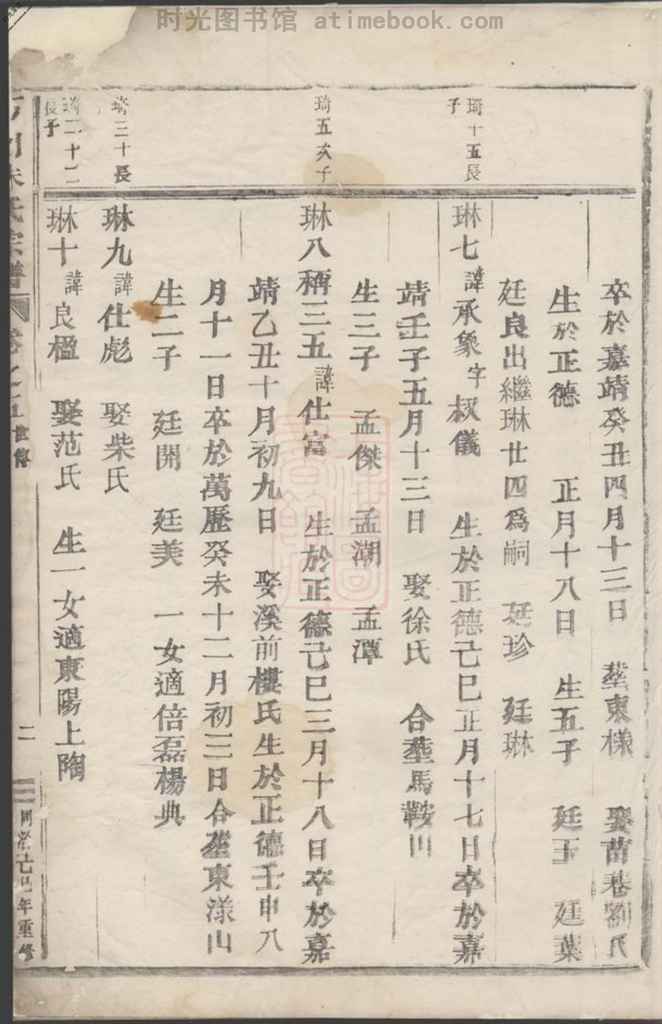 时光图书馆 atimebook.com
卒於嘉靖癸丑四月十三日 塟東樣 娶苗巷劉氏
生於正德 正月十八日 生五子 廷玉 廷葉
廷良出繼琳廿四爲嗣 廷珍 廷琳
琦十五長
子
琳七諱承象字叔儀 生於正德己巳正月十七日卒於嘉
靖壬子五月十三日 娶徐氏 合塟馬鞍山
生三子 孟傑 孟湖 孟潭
琦五次子
琳八稱三五諱仕富 生於正德己巳三月十八日卒於嘉
靖乙丑十月初九日 娶溪前樓氏生於正德壬申八
月十一日卒於萬歷癸未十二月初三日合塟東漾山
生二子 廷開 廷美 一女適倍磊楊典
琦三十長
琳九諱仕彪 娶柴氏
琦二十二
長子
琳十諱良楹 娶范氏 生一女適東陽上陶
朱氏宗譜 卷之五 世傳 二 同治己巳年重修